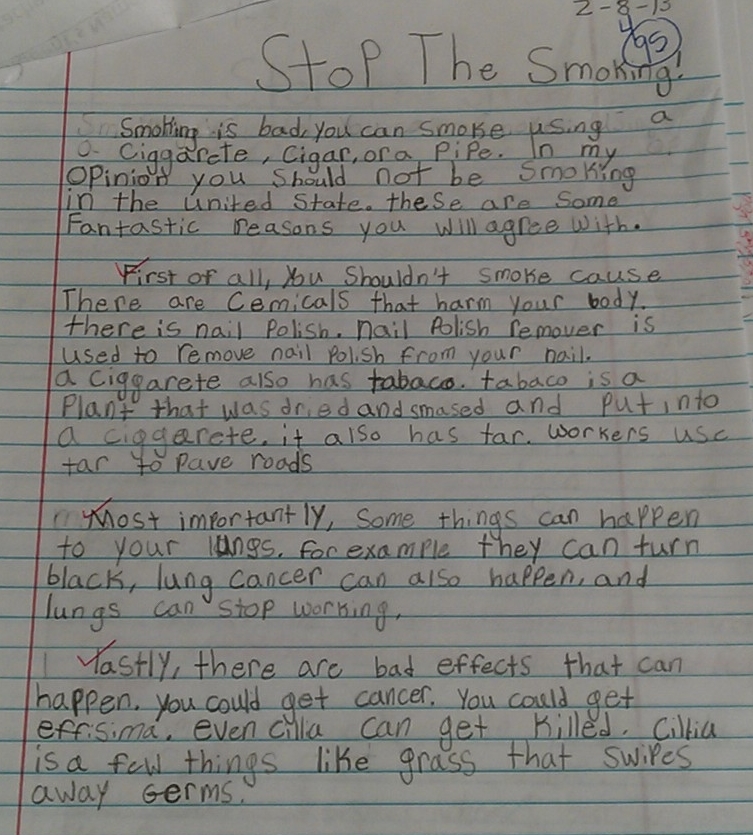 2-8-13
95
Stop The Smoking!
Smoking is bad, you can smoke using a
Ciggarete, Cigar, or a Pipe. In my
opinion you should not be Smoking
in the united State. these are Some
Fantastic reasons you will agree with.
First of all, You Shouldn't smoke cause
There are Cemicals that harm your body.
there is nail Polish. nail Polish remover is
used to remove nail Polish from your nail.
a ciggarete also has tabaco. tabaco is a
Plant that was dried and smased and put into
a ciggarete. it also has tar. workers use
tar to Pave roads
Most importantly, Some things can happen
to your lungs. for example they can turn
black, lung cancer can also happen, and
lungs can stop working.
lastly, there are bad effects that can
happen. you could get cancer. You could get
effisima. even cilla can get killed. Cillia
is a few things like grass that swipes
away Germs.